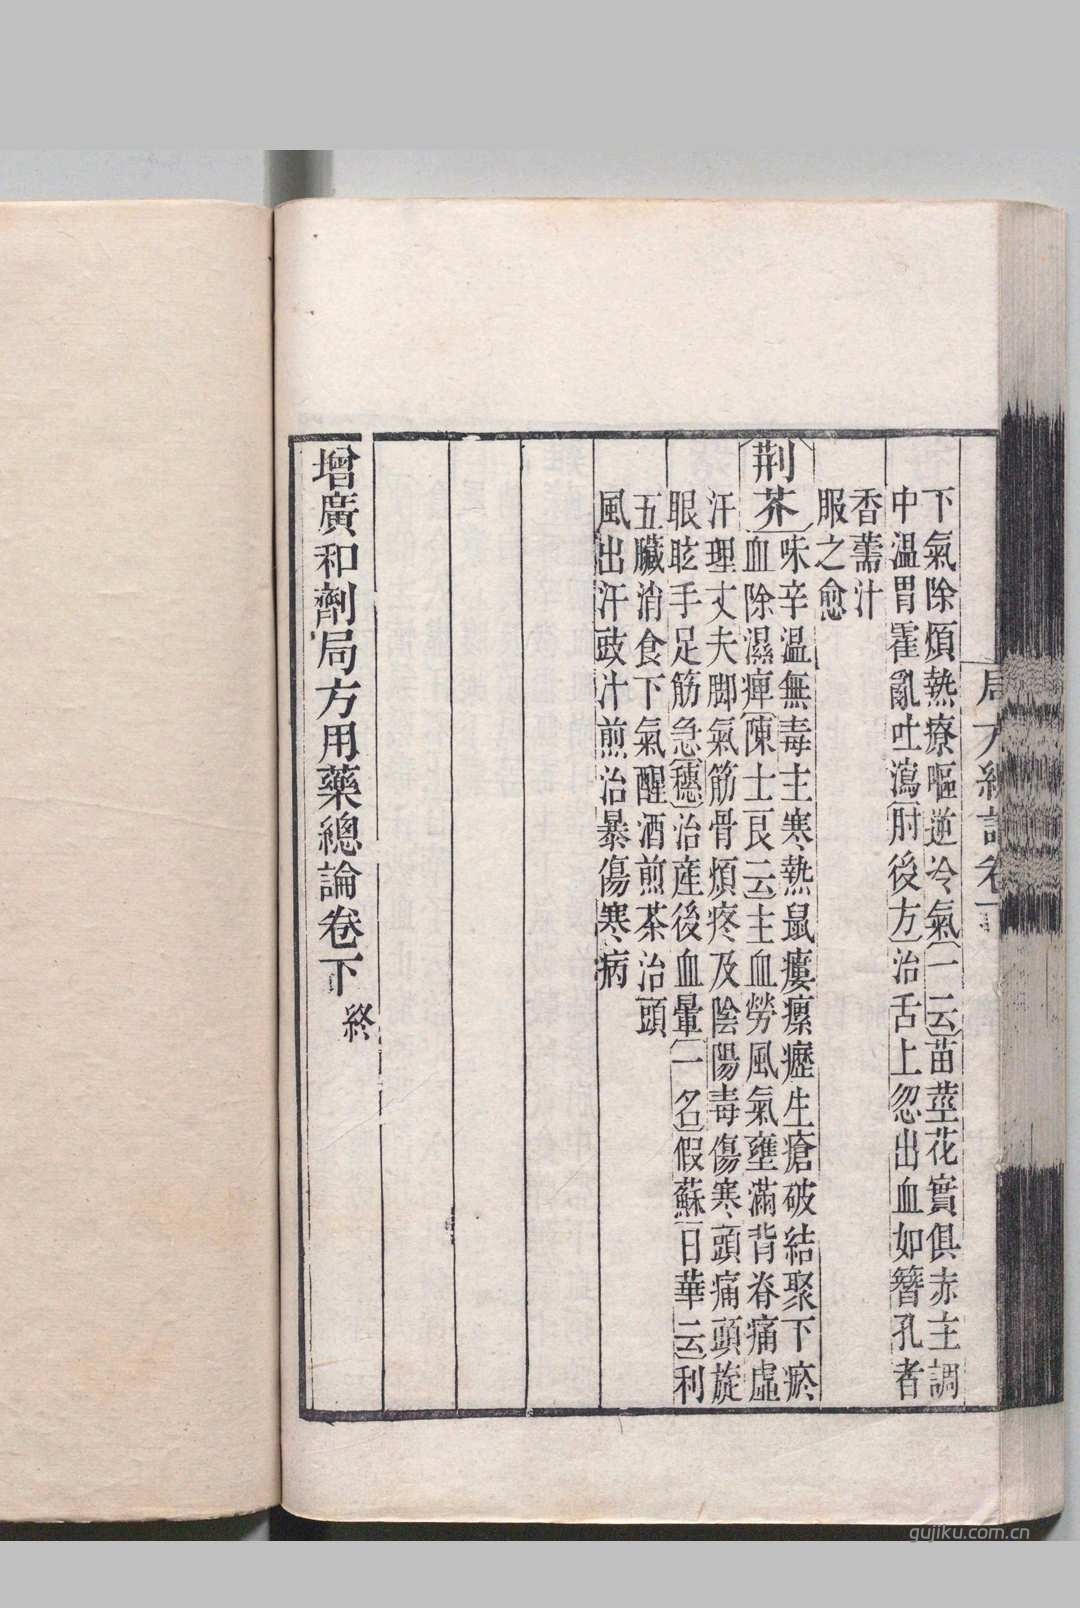 下氣除煩熱療嘔逆冷氣一云苗莖花實俱赤主調
中溫胃霍亂吐瀉肘後方治舌上忽出血如簪孔者
香薷汁
服之愈
荆芥
味辛溫無毒主寒熱鼠瘻瘰癧生瘡破結聚下瘀
血除濕痺陳士良云主血勞風氣壅滿背脊痛虛
汗理丈夫脚氣筋骨煩疼及陰陽毒傷寒頭痛頭旋
眼眩手足筋急穗治產後血暈一名假蘇日華云利
五臟消食下氣醒酒煎茶治頭
風出汗豉汁煎治暴傷寒病
增廣和劑局方用藥總論卷下
終
gujiku.com.cn